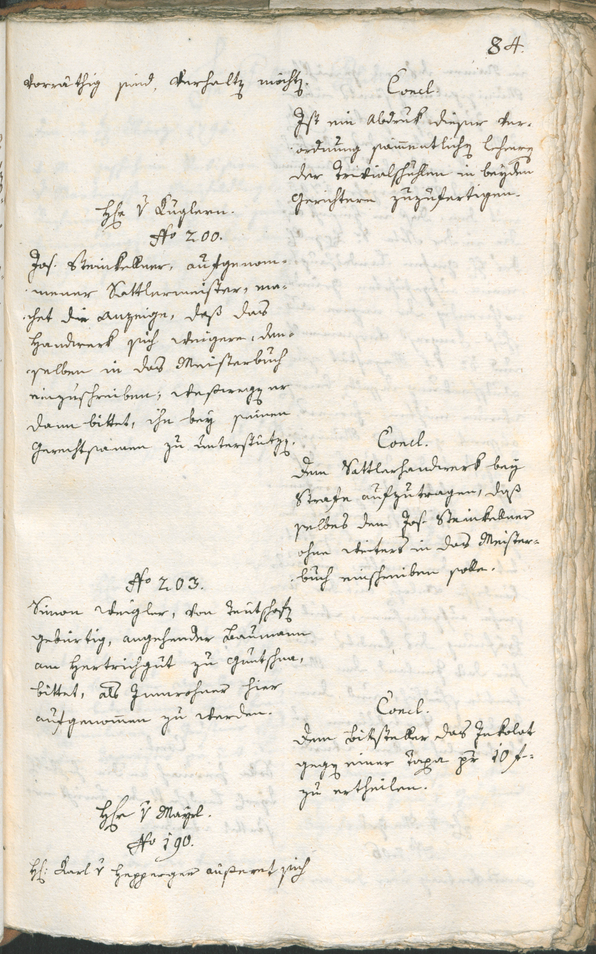 84.
vorräthig sind, verhalten möchte.
Concl.
Ist ein Abdruk dieser Ver-
ordnung sammentlichen Lehrern
der Trivialschulen in beyden
Gerichtern zuzufertigen.
Hh v Kuglern.
No 200.
Jos: Steinkeller, aufgenom-
mener Sattlermeister, ma-
chet die Anzeige, daß das
Handwerk sich weigere, den-
selben in das Meisterbuch
einzuschreiben; weßwegen er
dann bittet, ihn bey seinen
Gerechtsamen zu unterstützen.
Concl.
Dem Sattlerhandwerk bey
Strafe aufzutragen, daß
selbes den Jos: Steinkeller
ohne weiters in das Meister-
buch einschreiben solle.
No 203.
Simon Weigler, von
gebürtig, angehender Baumann
am Hertrichgut zu Guntschna,
bittet, als Innwohner hier
aufgenommen zu werden.
Concl.
Dem Bittsteller das Inkolat
gegen einer Taxa pr 10 f-
zu ertheilen.
Hh v Mayrl.
No 190.
H: Karl v Hepperger äußeret sich